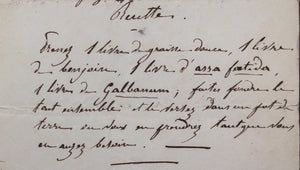 Recette.
Prenez 1 livre de graisse douce, 1 livre
de benjoin, 1 livre d'assa foetida,
1 livre de Galbanum; faites fondre le
tout ensemble et le versez dans un pot de
terre ou vous en prendrez tant que vous
en aurez besoin.